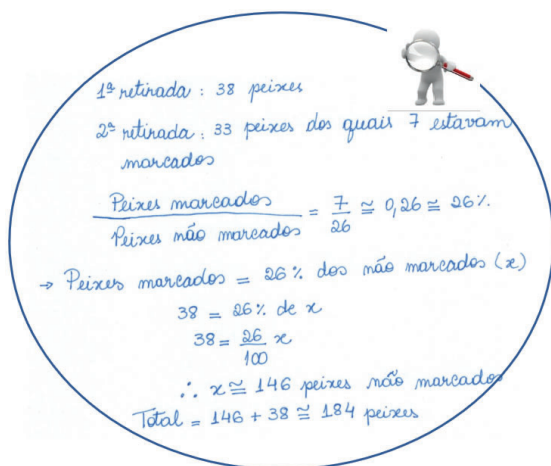 1ª retirada : 38 peixes
2ª retirada : 33 peixes dos quais 7 estavam
marcados
Peixes marcados / Peixes não marcados = 7/26 ≅ 0,26 ≅ 26%.
→ Peixes marcados = 26% dos não marcados (x)
38 = 26% de x
38 = 26/100 x
∴ x ≅ 146 peixes não marcados
Total = 146 + 38 ≅ 184 peixes